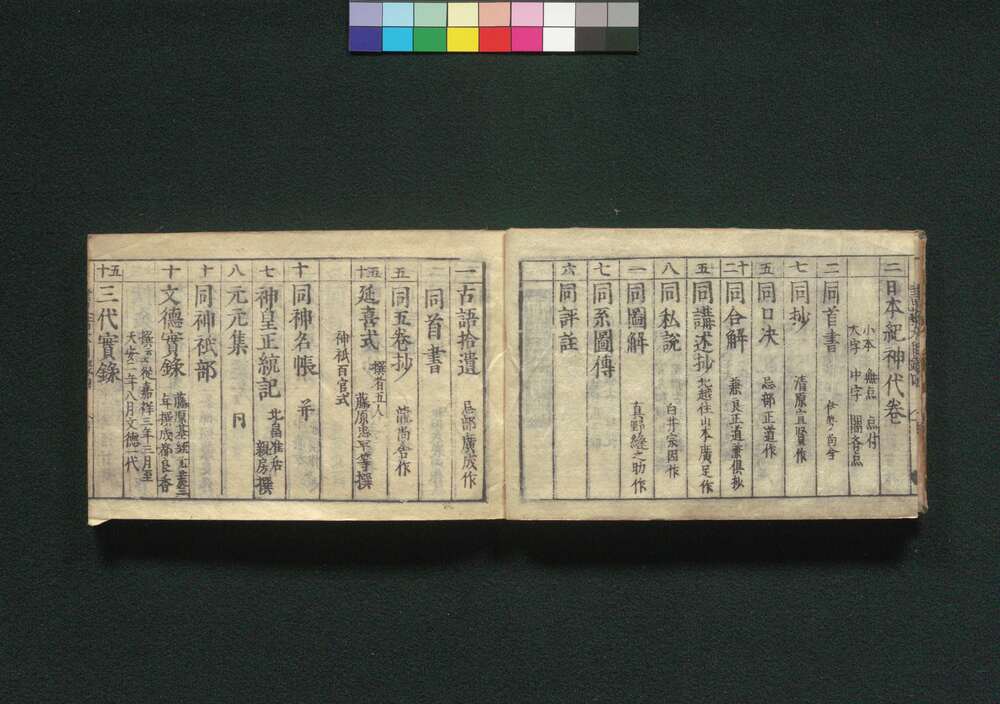 二 日本紀神代卷
小本 無点 点付
大字 中字
二 同首書
七 同抄 清原宣賢作
五 同口决 忌部正道作
十二 同合解 兼良正道兼俱抄
五 同講述抄 北越住山本廣足作
八 同私說 白井宗因作
一 同圖解 真野縫之助作
七 同系圖傳
六 同評註
一 古語拾遺 忌部廣成作
二 同首書
五 同五卷抄 龍尚舎作
五十 延喜式 撰者五人 藤原忠平等撰
神祇百官式
十 同神名帳 并
七 神皇正統記 北畠准后 親房撰
八 元元集 同
十 同神祇部
十 文德實錄 藤原基經
年撰成都良香
撰者云從嘉祥三年三月至
天安二年八月文德一代
五十 三代實錄